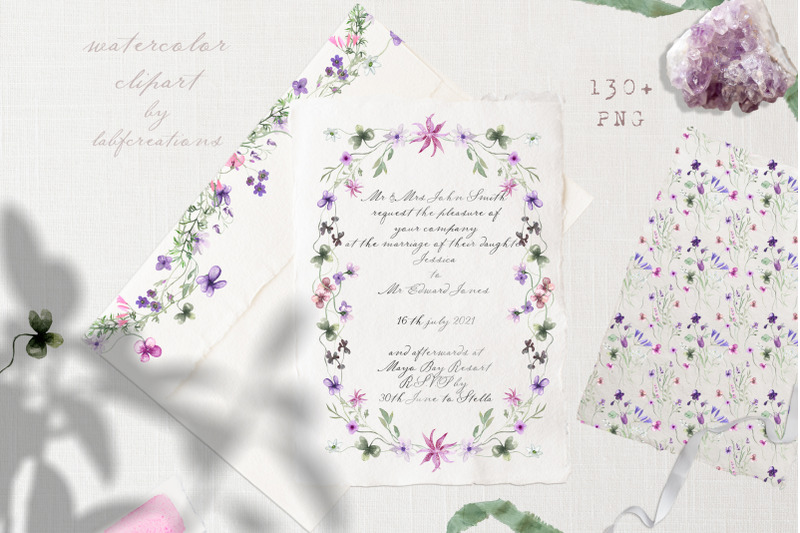 watercolor
clipart
by
labfcreations
130+
PNG
Mr & Mrs John Smith
request the pleasure of
your company
at the marriage of their daughte
Jessica
to
Mr Edward Jones
16th july 2021
and afterwards at
Mayo Bay Resort
RSVP by
30th June to Stella